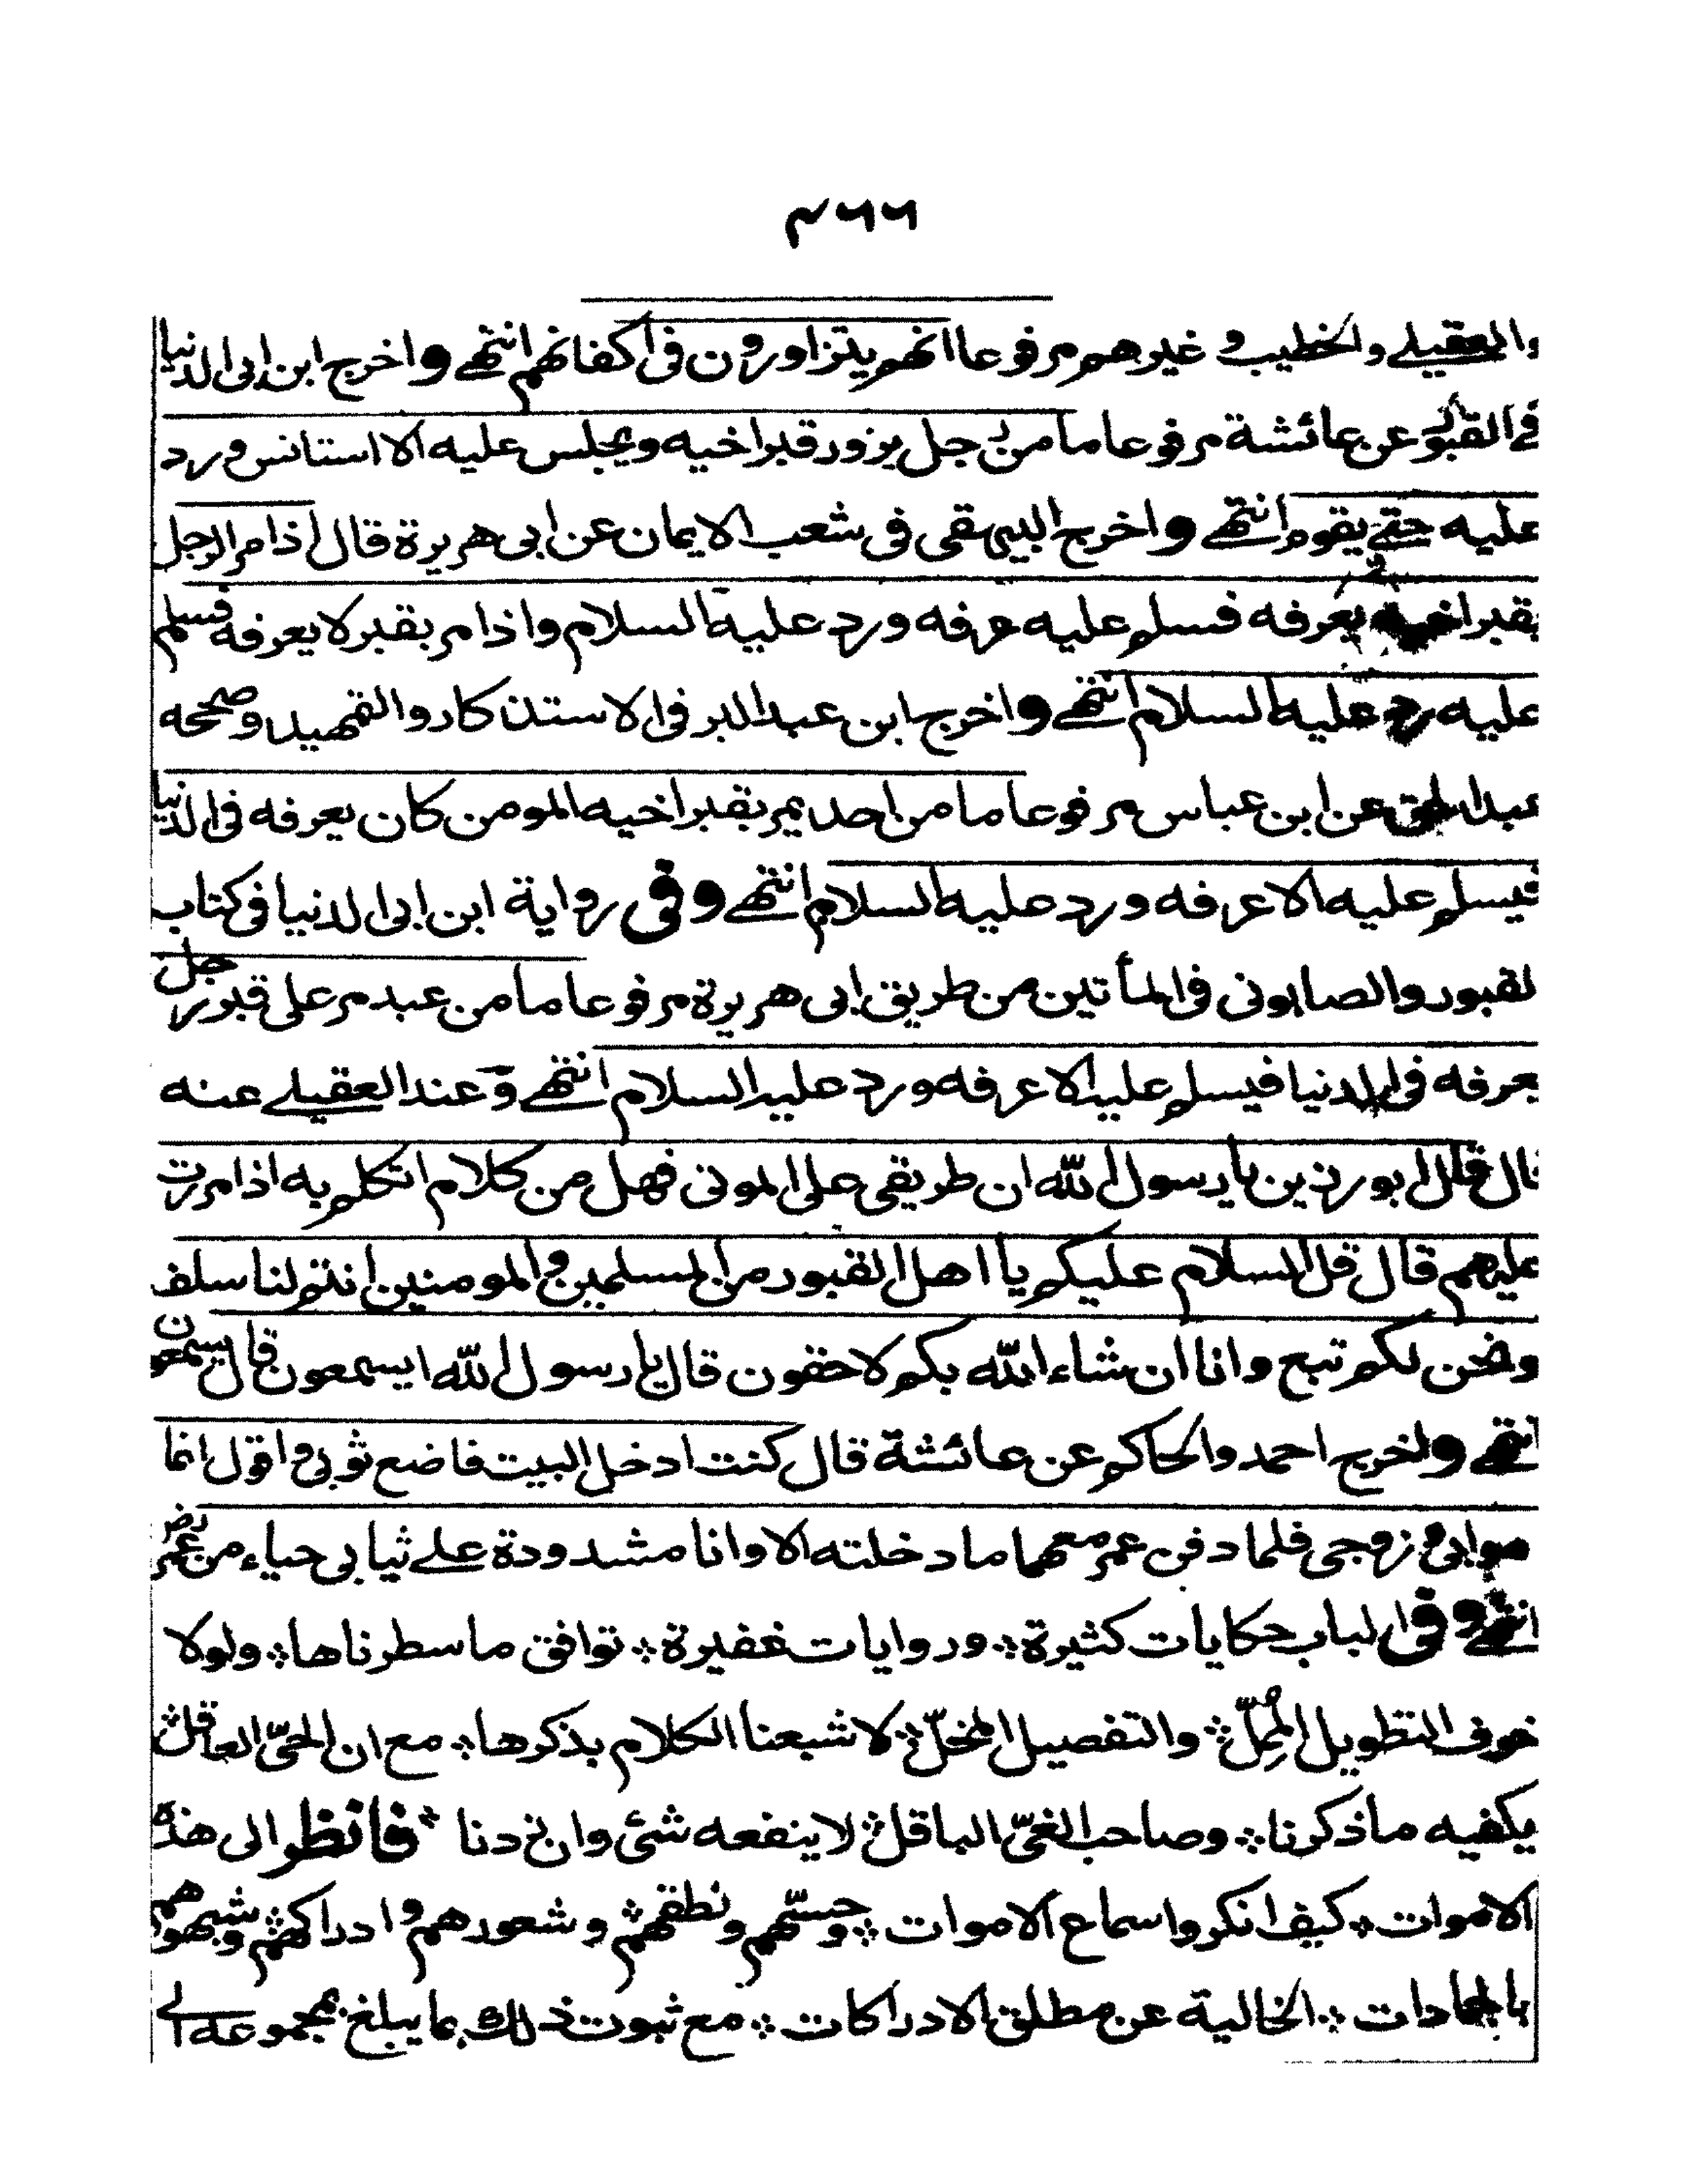 ۴۶۶
والعقيلے والخطيب وغيرهم مرفوعا انهم يتزاورون فى اكفانهم انتهے واخرج ابن ابى الدنيا
فے القبور عن عائشة مرفوعا ما من رجل يزور قبر اخيه ويجلس عليه الا استانس ورد
عليه حتے يقوم انتهے واخرج البيهقى فى شعب الايمان عن ابى هريرة قال اذا مر الرجل
بقبر اخيه يعرفه فسلم عليه عرفه ورد عليه السلام واذا مر بقبر لا يعرفه فسلم
عليه رد عليه السلام انتهے واخرج ابن عبد البر فى الاستذكار والتمهيد وصححه
عبد الحق عن ابن عباس مرفوعا ما من احد يمر بقبر اخيه المومن كان يعرفه فى الدنيا
فيسلم عليه الا عرفه ورد عليه السلام انتهے وفى رواية ابن ابى الدنيا فى كتاب
لقبور والصابونى فى المأتين من طريق ابى هريرة مرفوعا ما من عبد مر على قبر رجل
يعرفه فى الدنيا فيسلم عليه الا عرفه ورد عليه السلام انتهے وعند العقيلے عنه
قال قال ابو رزين يا رسول الله ان طريقى على الموتى فهل من كلام اتكلم به اذا مررت
عليهم قال قل السلام عليكم يا اهل القبور من المسلمين والمومنين انتم لنا سلف
ونحن لكم تبع وانا ان شاء الله بكم لاحقون قال يا رسول الله ايسمعون قال يسمعون
انتهے واخرج احمد والحاكم عن عائشة قال كنت ادخل البيت فاضع ثوبى واقول انما
هو ابى وزوجى فلما دفن عمر معهما ما دخلته الا وانا مشدودة علے ثيابى حياء من عمر رض
انتهے وفى الباب حكايات كثيرة ؞ وروايات غفيرة ؞ توافق ما سطرناها ؞ ولولا
خوف التطويل المُمِلّ ؞ والتفصيل المخلّ ؞ لاشبعنا الكلام بذكرها ؞ مع ان الحىّ العاقل ؞
يكفيه ما ذكرنا ؞ وصاحب الغىّ الباقل ؞ لا ينفعه شئ وان زدنا ؞ فانظر الى هذه
الاموات ؞ كيف انكروا سماع الاموات ؞ وحسّهم ونطقهم ؞ وشعورهم وادراكهم ؞ وشبهوهم
بالجمادات ؞ الخالية عن مطلق الادراكات ؞ مع ثبوت ذلك بما يبلغ بمجموعه الے